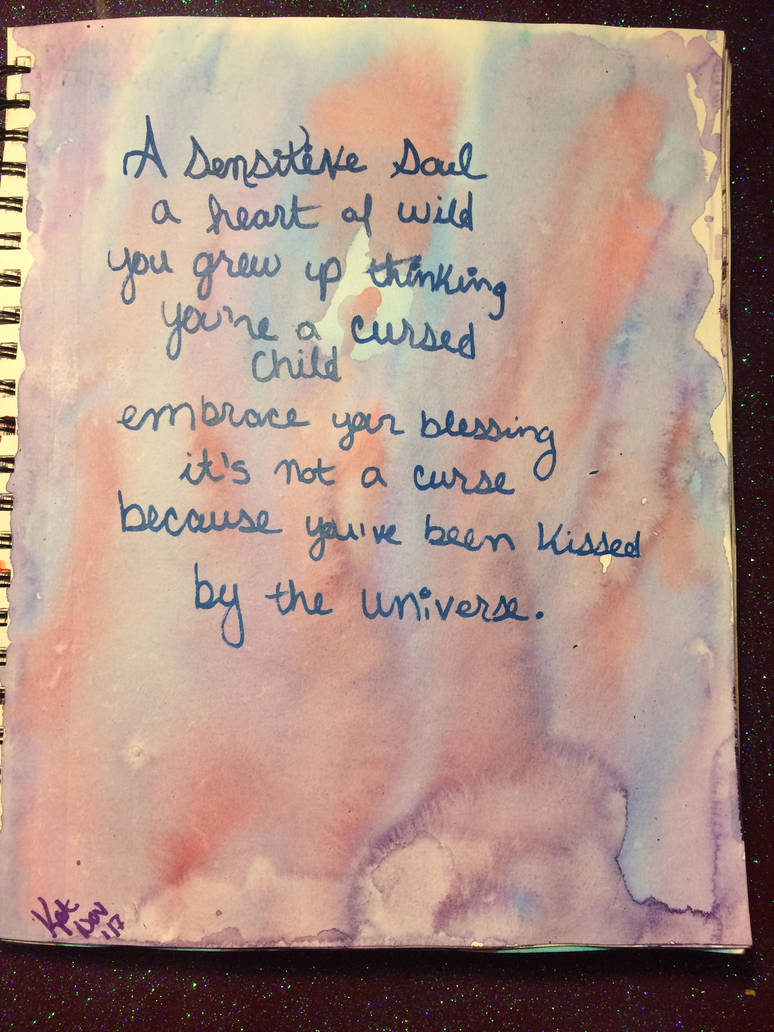 A sensitive soul
a heart of wild
you grew up thinking
you're a cursed
child
embrace your blessing
it's not a curse
because you've been kissed
by the universe.
Kat
Nov
'17